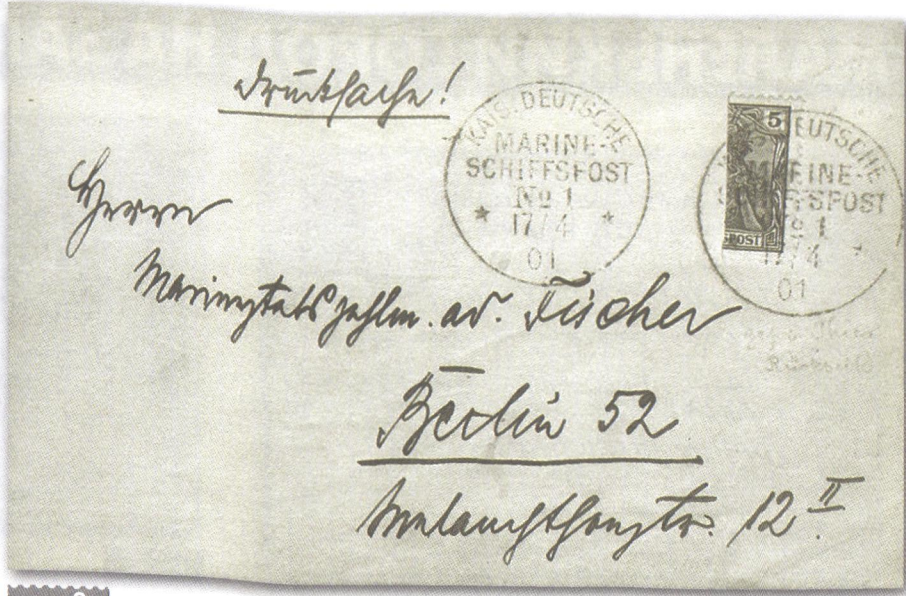 Drucksache!
KAIS. DEUTSCHE
MARINE-
SCHIFFSPOST
No 1
* 17/4 *
01
5
POST
DEUTSCHE
MARINE-
SCHIFFSPOST
No 1
17/4 *
01
Herrn
Marinestabszahlm. ad. Fischer
Berlin 52
Melanchthonstr. 12 II